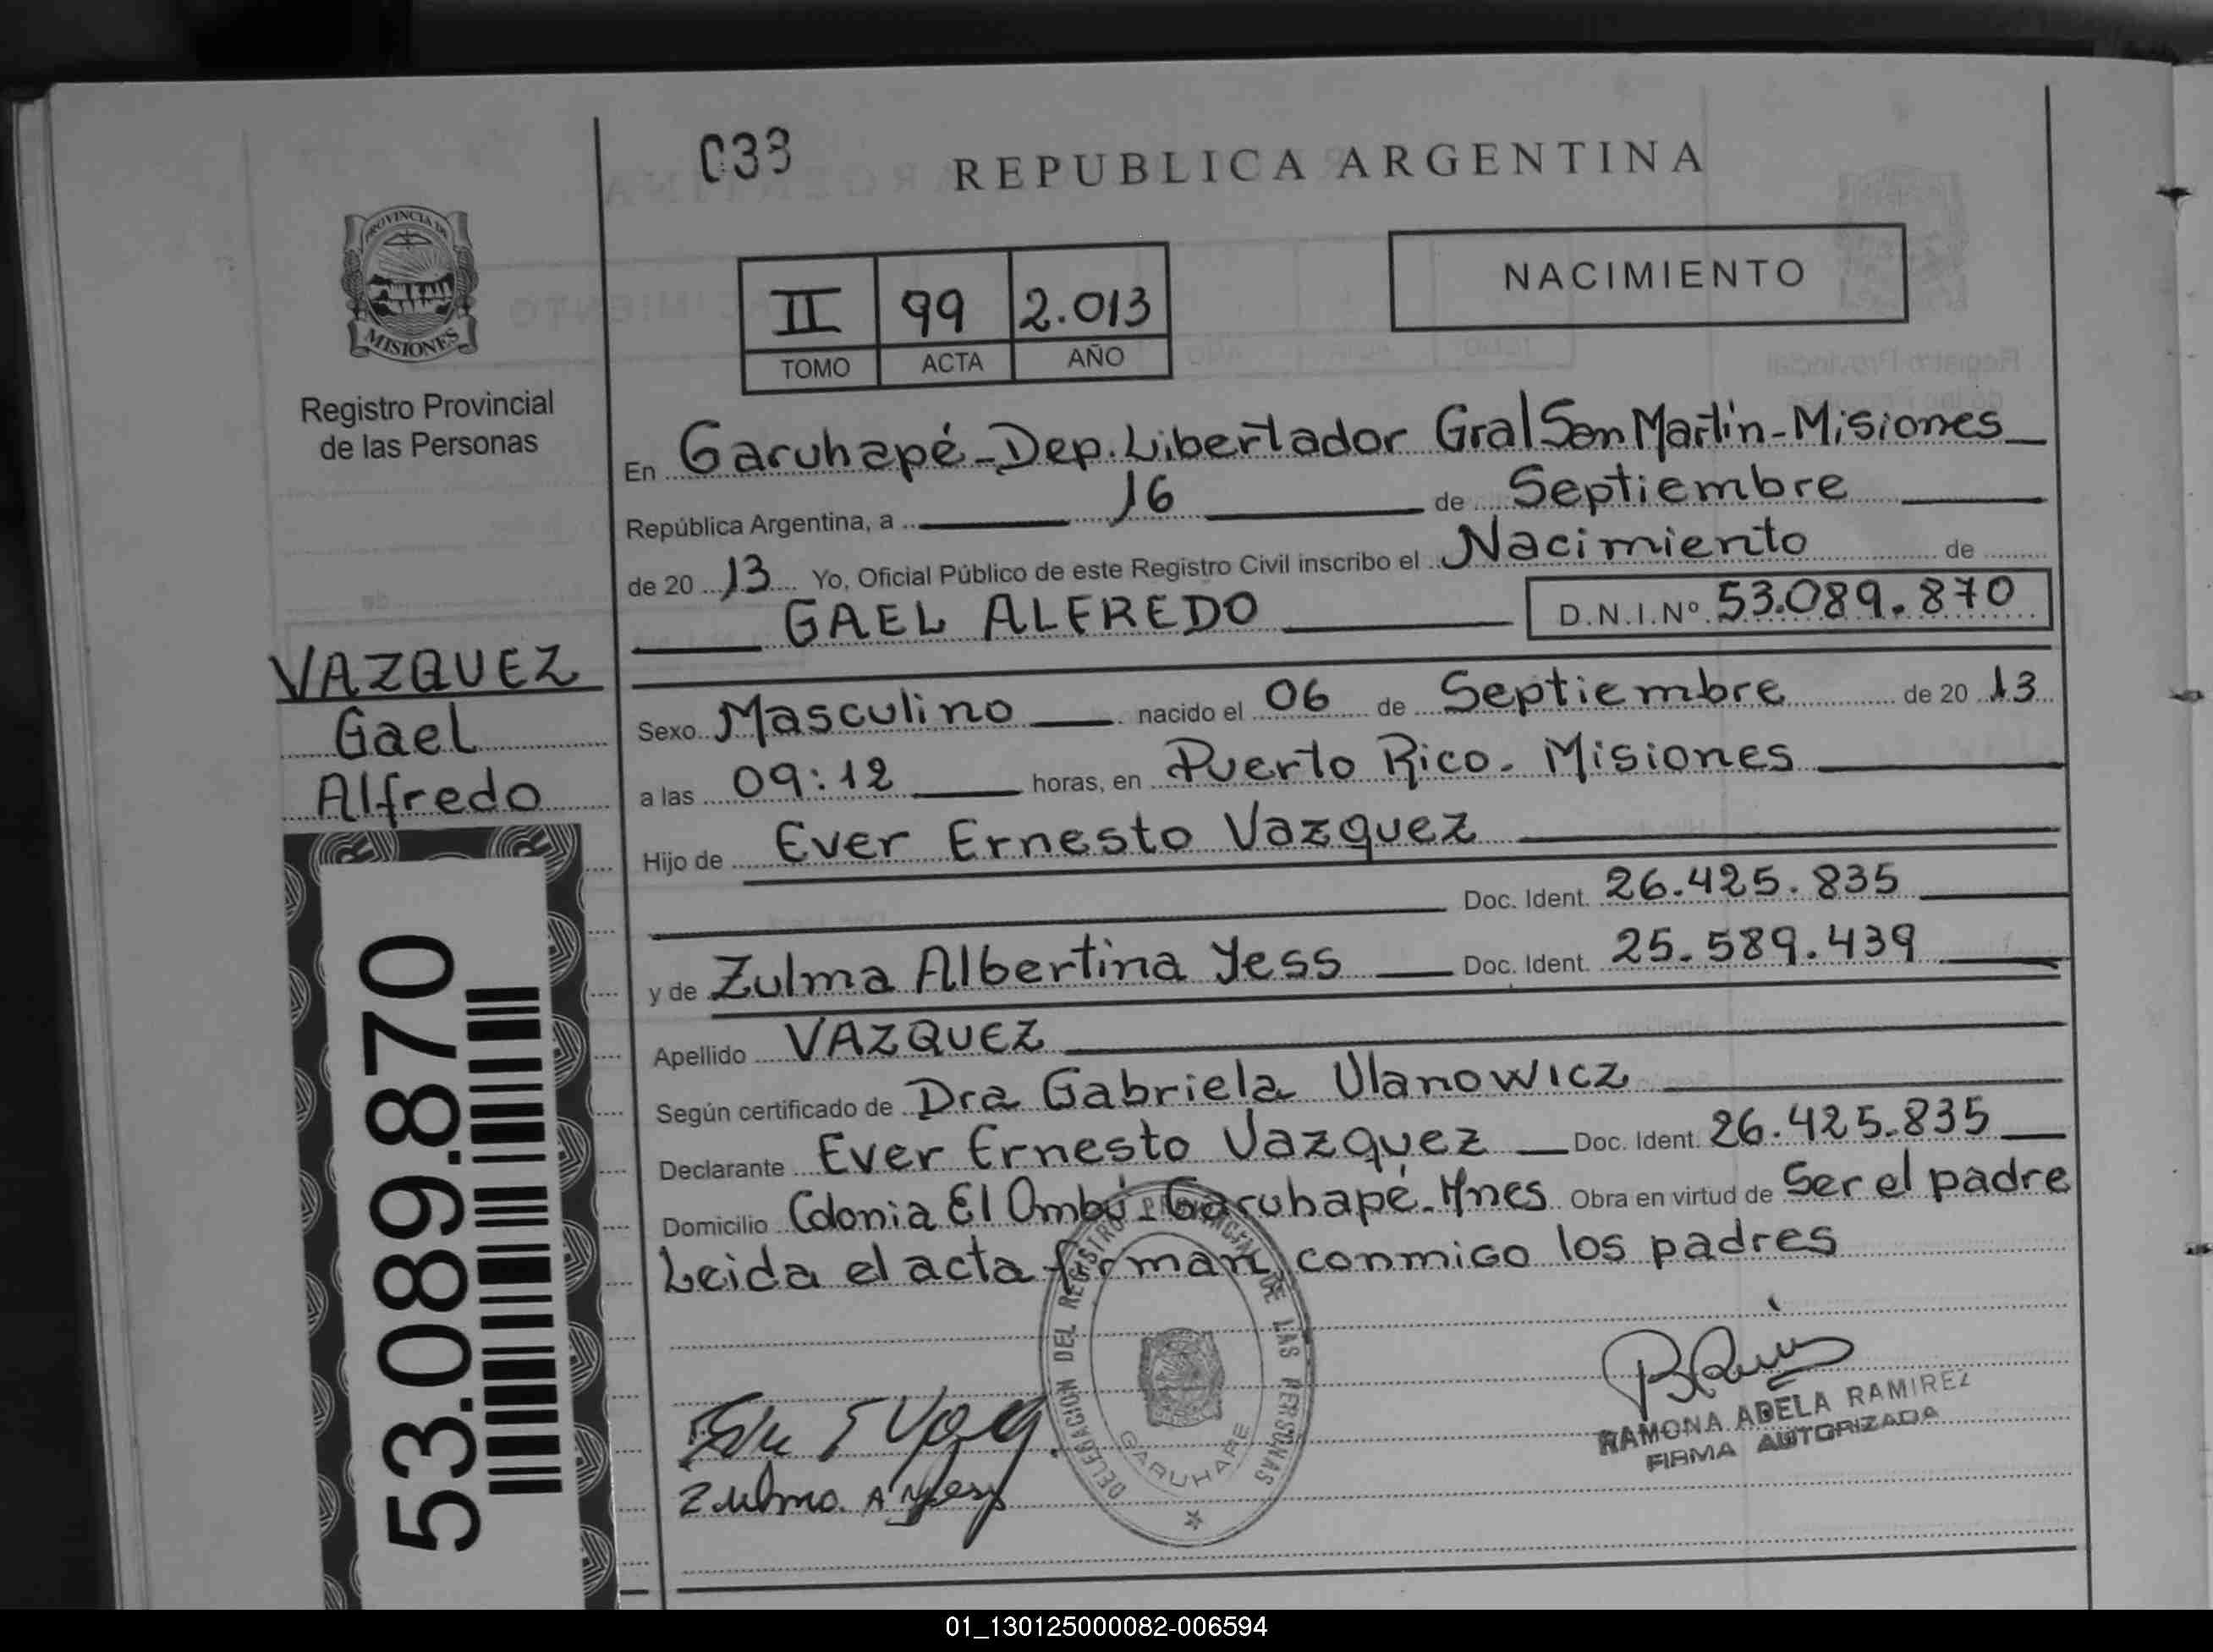 033
REPUBLICA ARGENTINA
PROVINCIA DE
MISIONES
Registro Provincial
de las Personas
NACIMIENTO
II 99 2.013
TOMO ACTA AÑO
En Garuhapé - Dep. Libertador Gral San Martín - Misiones
República Argentina, a 16 de Septiembre
de 20 13 Yo, Oficial Público de este Registro Civil inscribo el Nacimiento de
GAEL ALFREDO D.N.I.Nº 53.089.870
VAZQUEZ
Gael
Alfredo
Sexo Masculino nacido el 06 de Septiembre de 20 13
a las 09:12 horas, en Puerto Rico - Misiones
Hijo de Ever Ernesto Vazquez
Doc. Ident. 26.425.835
y de Zulma Albertina Yess Doc. Ident. 25.589.439
Apellido VAZQUEZ
Según certificado de Dra Gabriela Ulanowicz
Declarante Ever Ernesto Vazquez Doc. Ident. 26.425.835
Domicilio Colonia El Ombú - Garuhapé - Mnes Obra en virtud de Ser el padre
Leida el acta firman conmigo los padres
53.089.870
DELEGACION DEL REGISTRO PROVINCIAL DE LAS PERSONAS
GARUHAPE
Zulma A Yess
RAMONA ADELA RAMIREZ
FIRMA AUTORIZADA
01_130125000082-006594